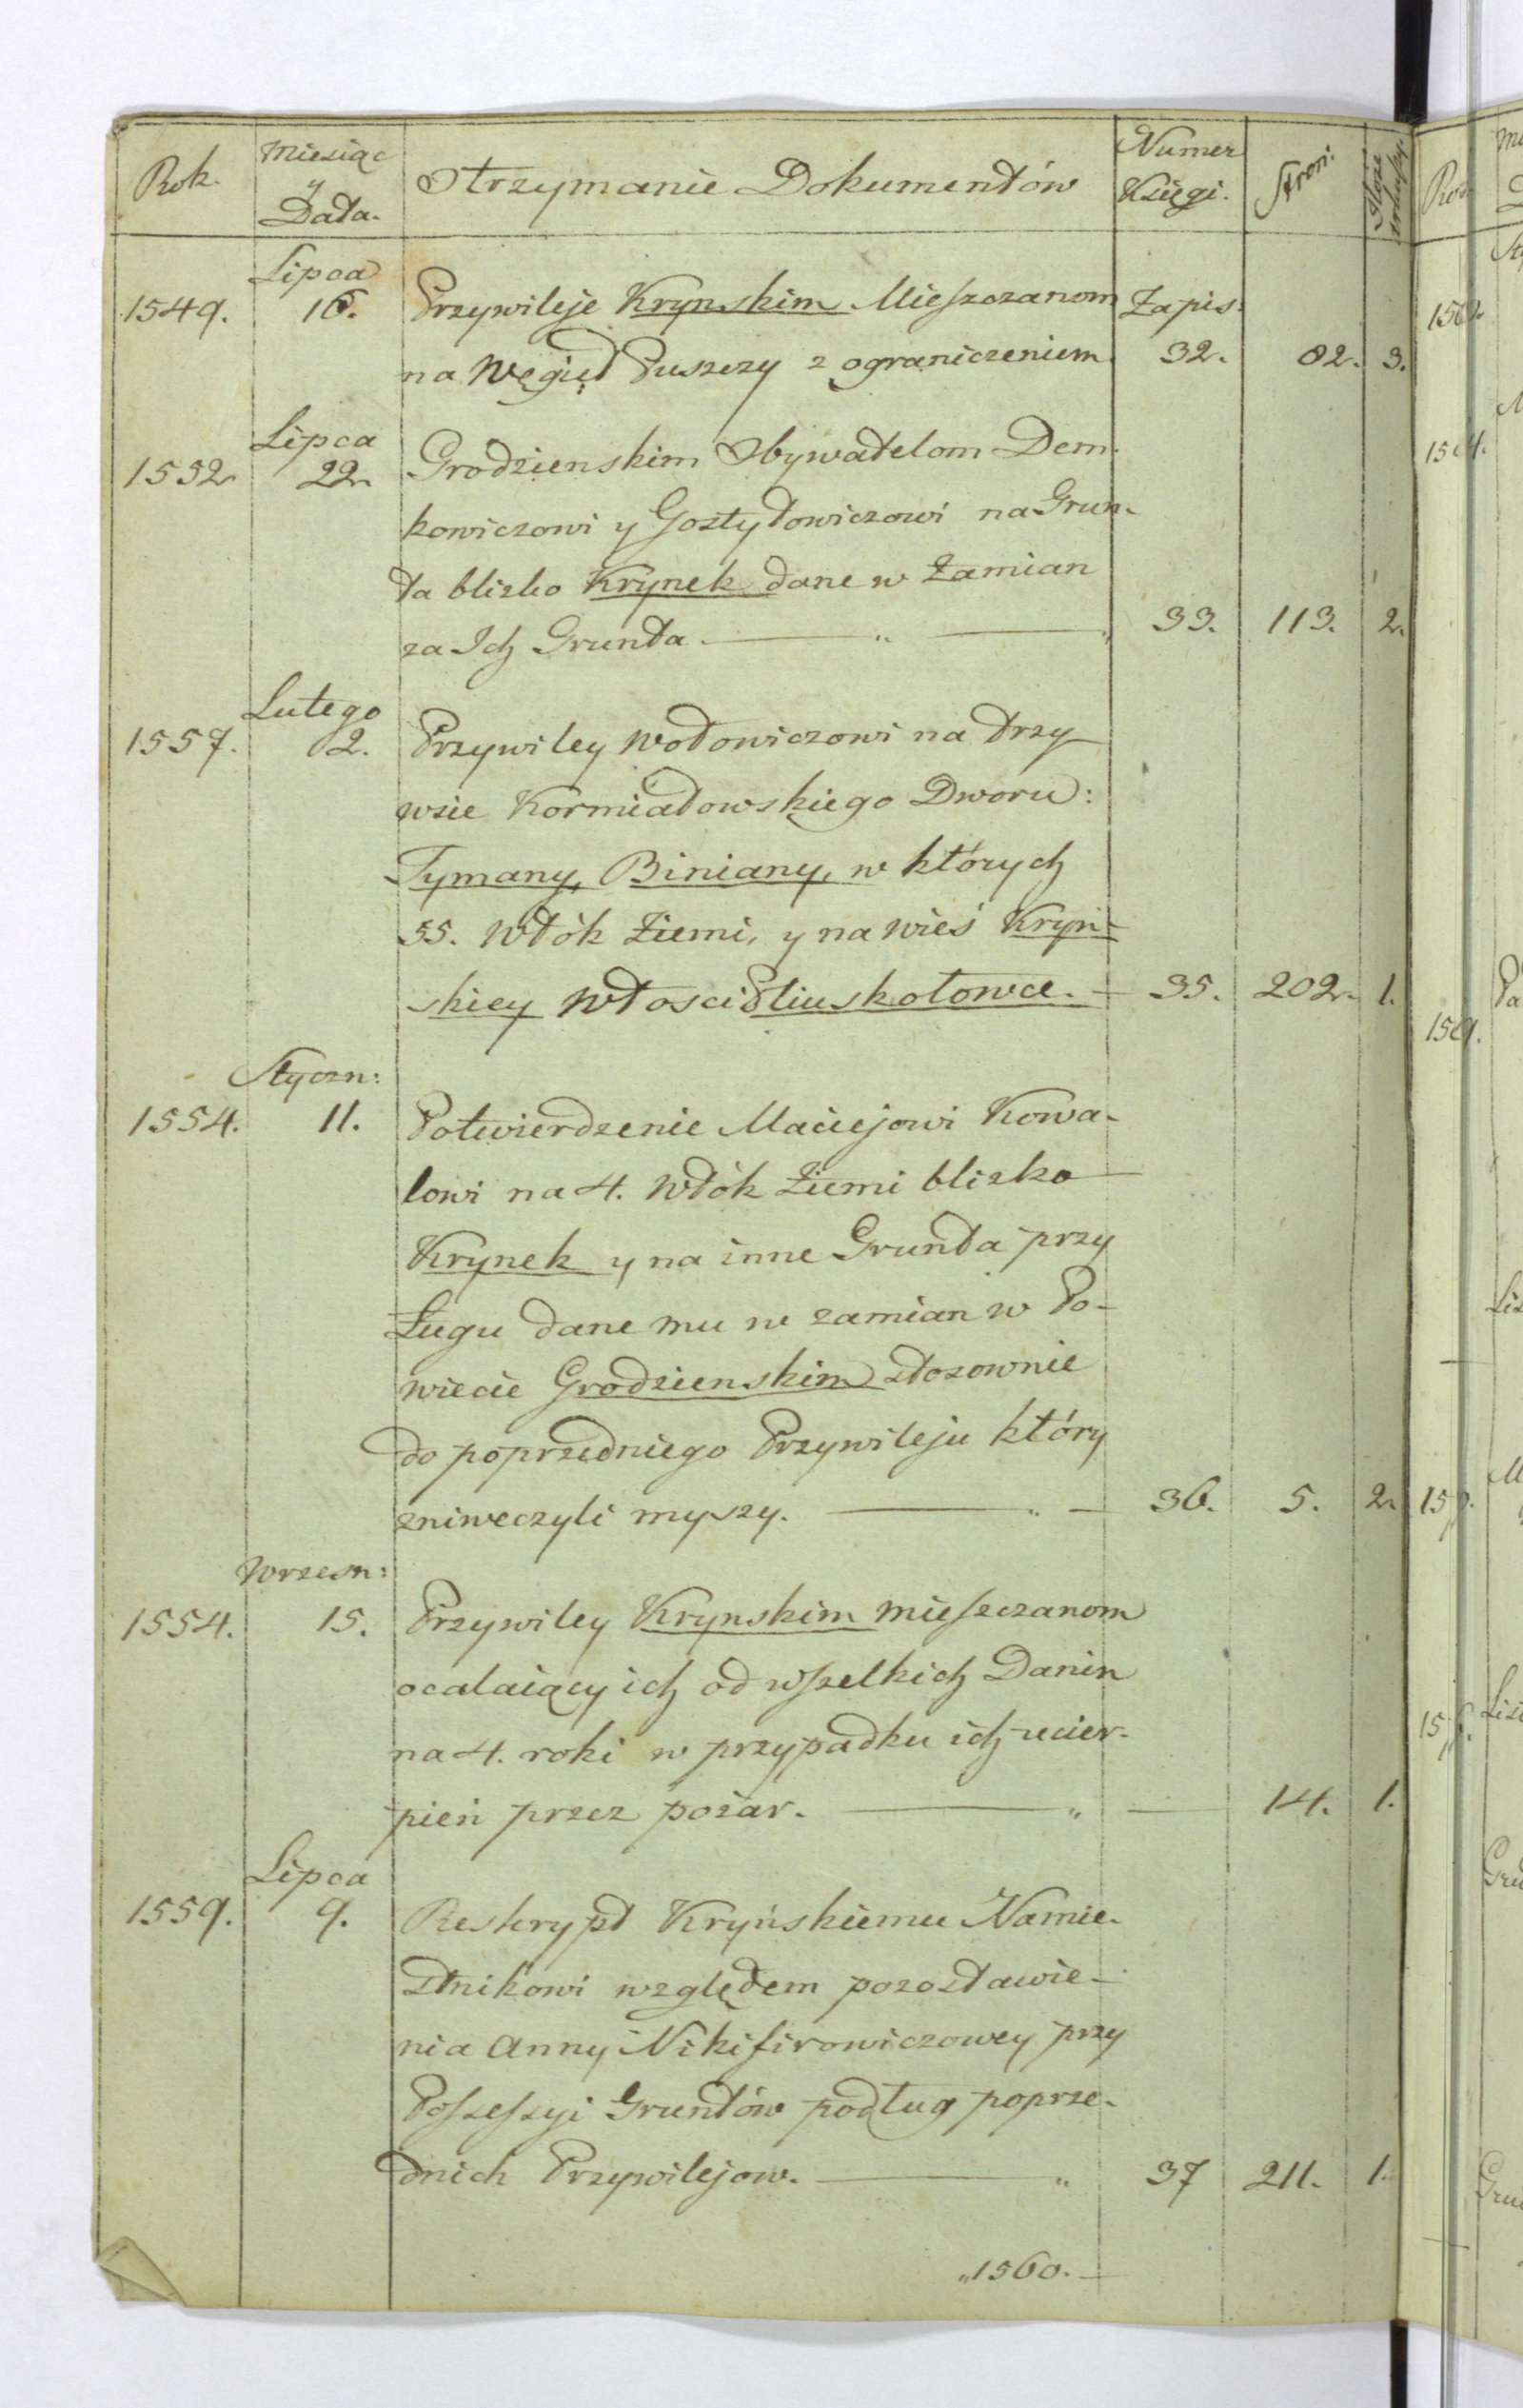 Rok. Miesiąc y Data. Otrzymanie Dokumentów Numer Księgi. Stron:
Lipca
1549. 16. Przywileje Krynskim Mieszczanom Zapis:
na Puszczy z ograniczeniem 32. 82. 3.
Lipca
1552. 22. Grodzienskim Obywatelom Dem-
kowiczowi y Gostydowiczowi na Grun-
ta blizko Krynek dane w Zamian
za Ich Grunta. 33. 113. 2.
Lutego
1557. 2. Przywiley Wołowiczowi na trzy
wsie Kormiałowskiego Dworu:
Tymany, Biniany, w których
55. Włók Ziemi, y na wieś Kryń-
skiey Włosci 35. 202. 1.
Styczn:
1554. 11. Potwierdzenie Maciejowi Kowa-
lowi na 4. Włók Ziemi blizko
Krynek y na inne Grunta przy
Ługu dane mu w zamian w Po-
wiecie Grodzienskim stosownie
do poprzedniego Przywileju który
zniweczyli myszy. 36. 5. 2.
Wrzesn:
1554. 15. Przywiley Krynskim mieszczanom
ocalaiący ich od wszelkich Danin
na 4. roki w przypadku ich ucier-
pień przez pożar. 14. 1.
Lipca
1559. 9. Reskrypt Kryńskiemu Namie-
stnikowi względem pozostawie-
nia Anny Nikifirowiczowey przy
Possessyi Gruntów podług poprze-
dnich Przywilejow. 37 211. 1.
1560.